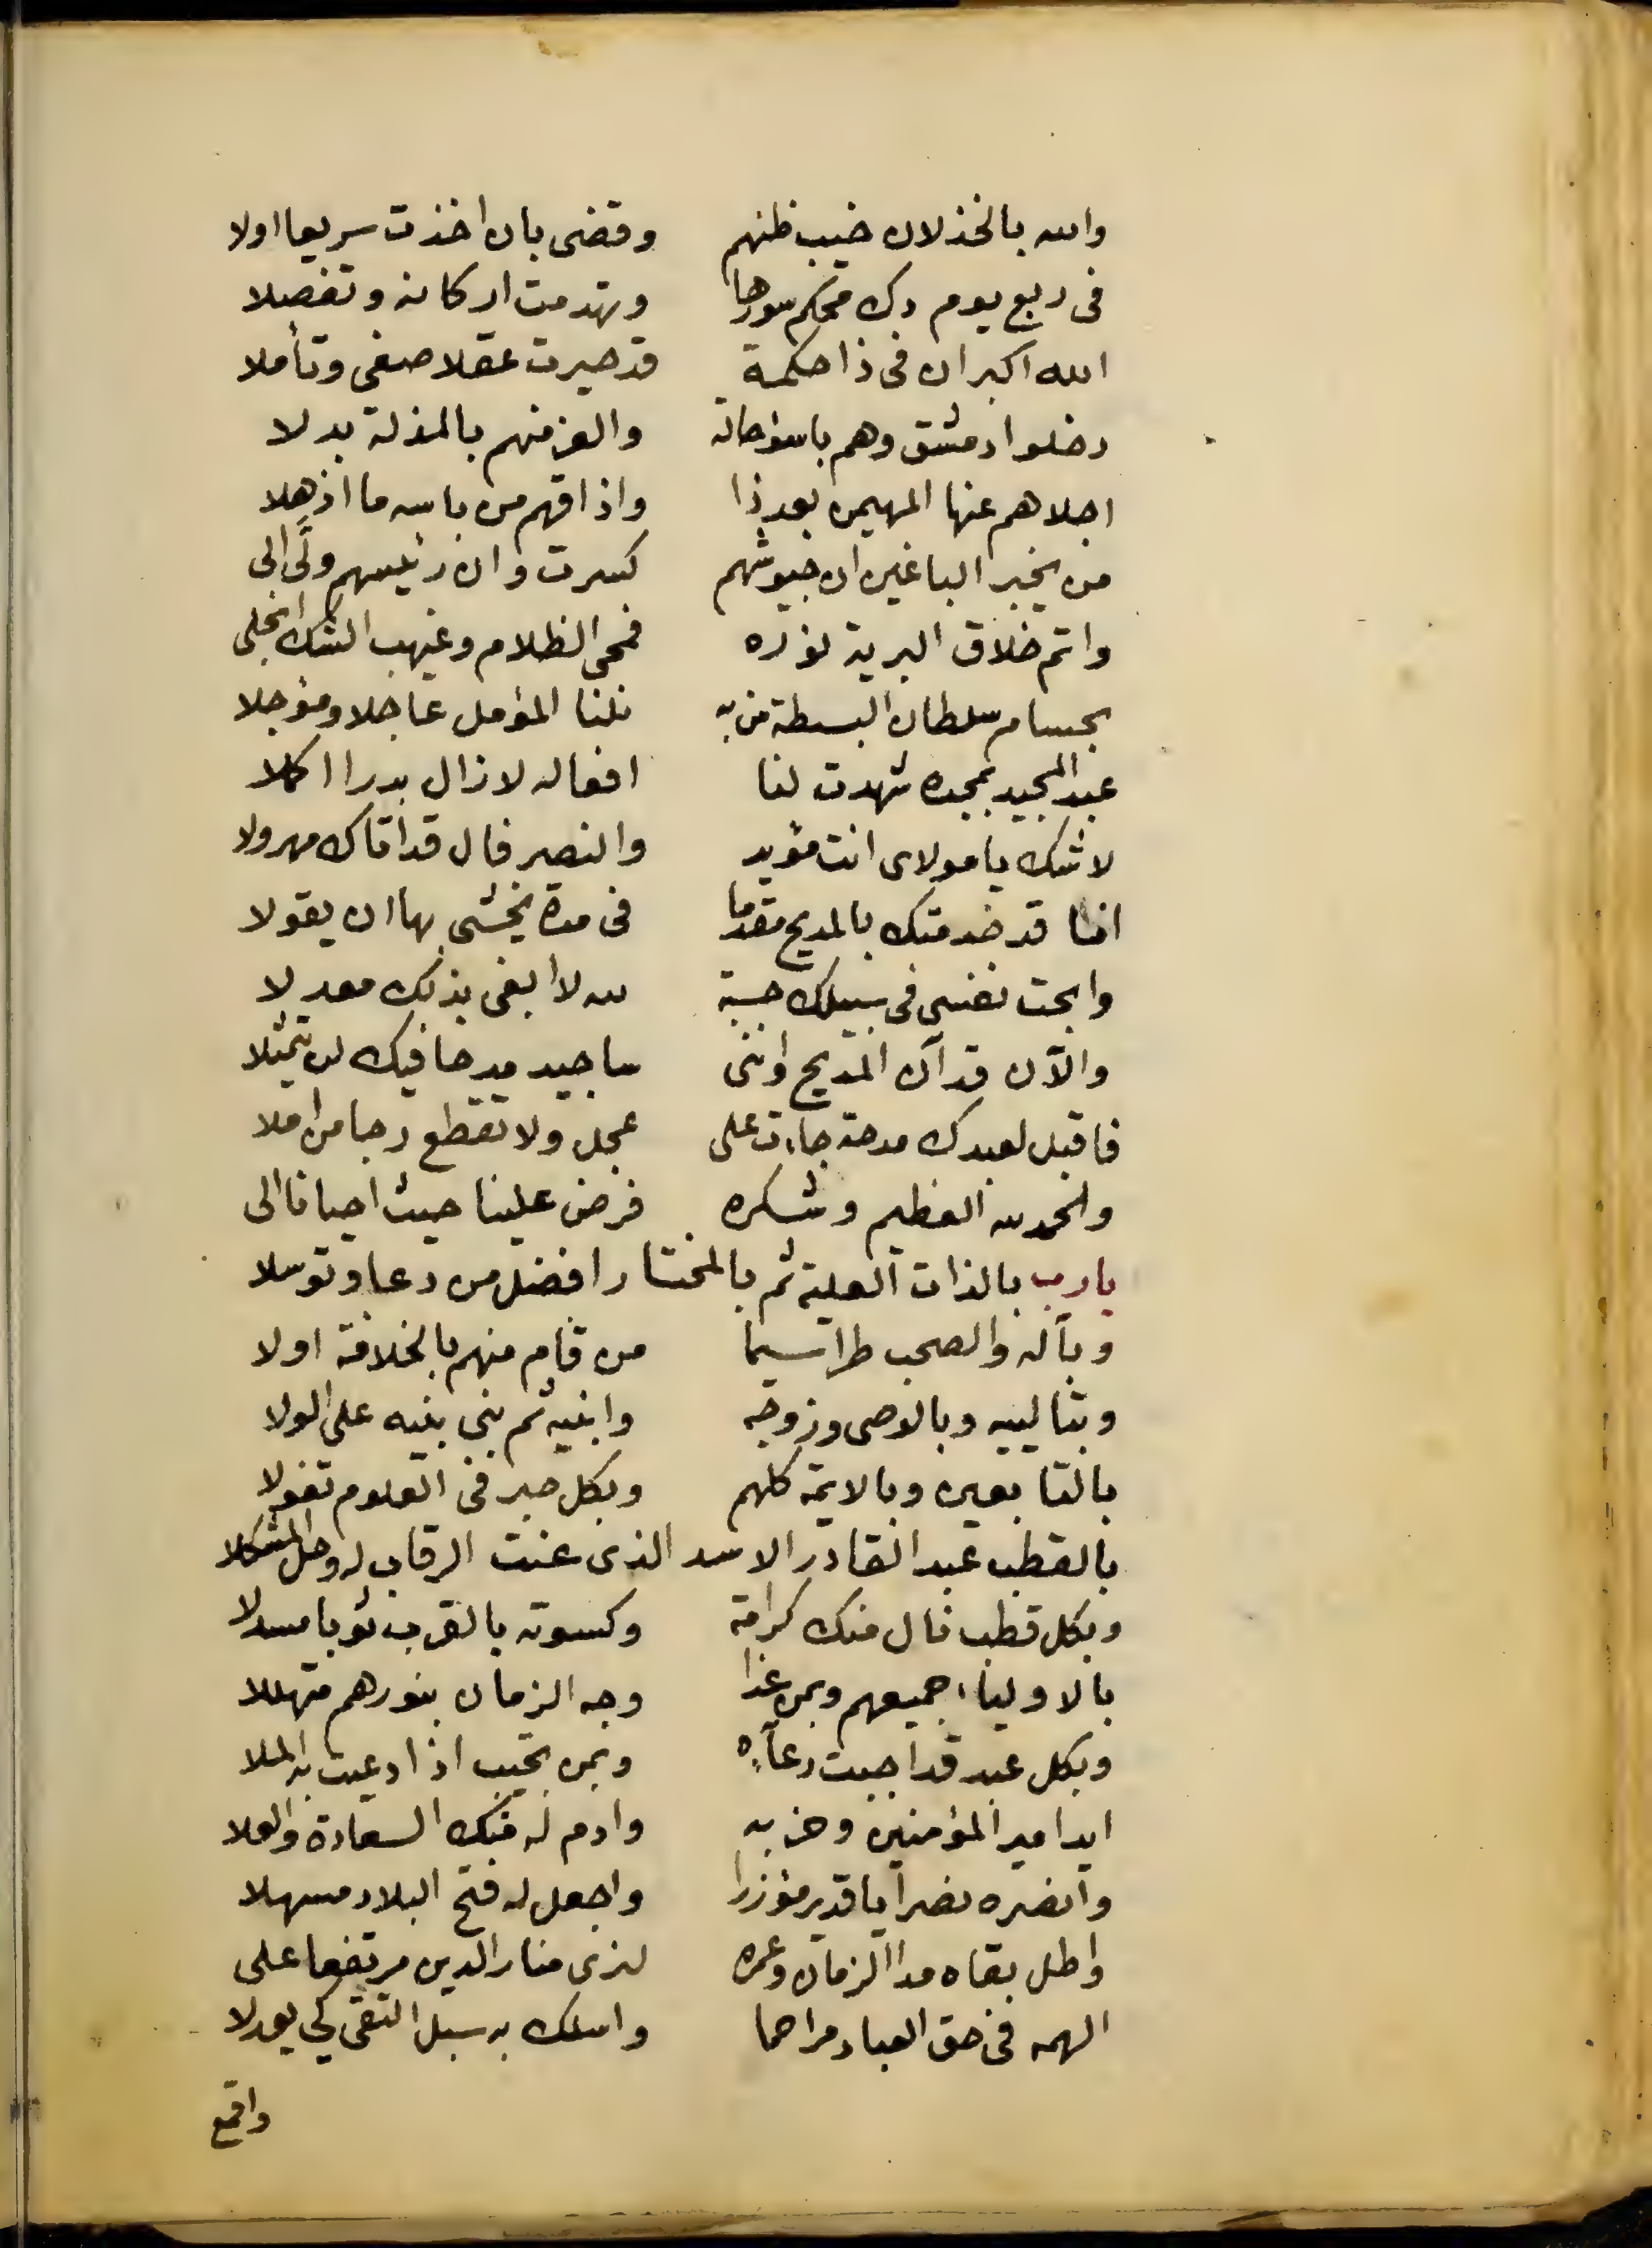 والله بالخذلان خيب ظنهم وقضى بان اخذت سريعا اولا
فى ربع يوم دك محكم سورها وتهدمت اركانه وتفصلا
الله اكبر ان فى ذا حكمة قد حيرت عقلا صغى وتأملا
دخلوا دمشق وهم باسوٴ حالة والعز منهم بالمذلة بدلا
اجلاهم عنها المهيمن بعد ذا واذاقهم من باسه ما اذهلا
من يخبر الباغين ان جيوشهم كسرت وان رئيسهم ولّى الى
واتم خلاق البرية نوره فمحى الظلام وغيهب الشك انجلى
بحسام سلطان البسطة من به نلنا المؤمل عاجلا ومؤجلا
عبد المجيد بمجده شهدت لنا افعاله لا زال بدرا اكملا
لا شك يا مولاى انت مؤيد والنصر فال قد اتاك مهرولا
انا قد خدمتك بالمديح مقدما فى مدة يخشى بها ان يقولا
وابحت نفسى فى سبيلك حسبة لله لا ابغى بذلك معدلا
والآن قد آن المديح واننى ساجيد مدحا فيك لن يتمثلا
فاقبل لعبدك مدحة جاءت على عجل ولا تقطع رجا من املا
والحمد لله العظيم وشكره فرض علينا حيث احيانا الى
يا رب بالذات العلية ثم بالمختار افضل من دعا وتوسلا
وبآله والصحب طرا سيما من قام منهم بالخلافة اولا
وبتالييه وبالوصى وزوجه وابنيه ثم بنى بنيه على الولا
بالتابعين وبالايمة كلهم وبكل حبر فى العلوم تغولا
بالقطب عبد القادر الاسد الذى عنت الرقاب له وحل المشكلا
وبكل قطب نال منك كرامة وكسوته بالقرب ثوبا مسدلا
بالاولياء جميعهم وبمن غدا وجه الزمان بنورهم متهللا
وبكل عبد قد اجبت دعآءه وبمن تجيب اذا دعيت به الملا
ايد امير المؤمنين وحزبه وادم له منك السعادة والعلا
وانصره نصرا يا قدير مؤزرا واجعل له فتح البلاد مسهلا
واطل بقاه مدا الزمان وعمره لنرى منار الدين مرتفعا على
الهمه فى حق العباد مراحما واسلك به سبل التقى كى يعدلا
واقمع